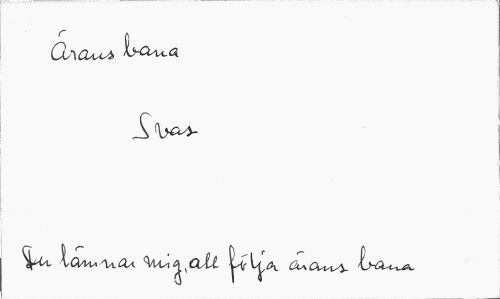 Ärans bana
Svas
Du lämnar mig, att följa ärans bana